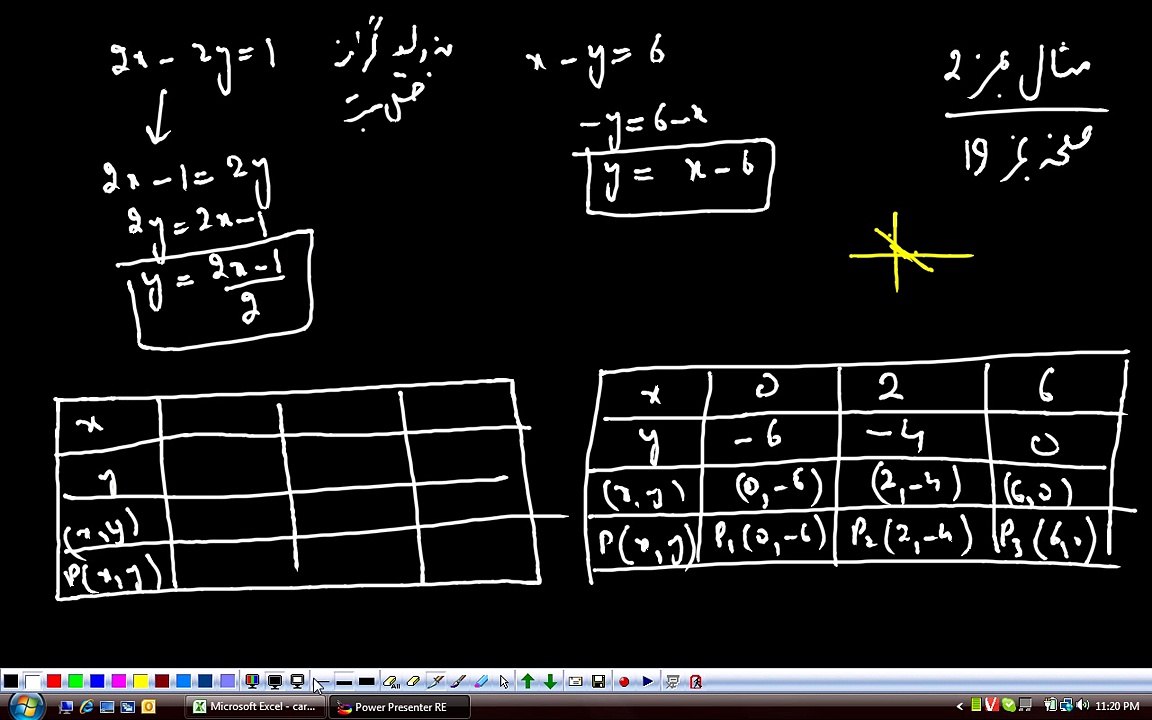 مثال نمبر 2
صفحہ نمبر 19
2x - 2y = 1
2x - 1 = 2y
2y = 2x - 1
y = (2x - 1)/2
x - y = 6
-y = 6 - x
y = x - 6
x
y
(x,y)
P(x,y)
x 0 2 6
y -6 -4 0
(x,y) (0,-6) (2,-4) (6,0)
P(x,y) P₁(0,-6) P₂(2,-4) P₃(6,0)
Microsoft Excel - car... Power Presenter RE 11:20 PM